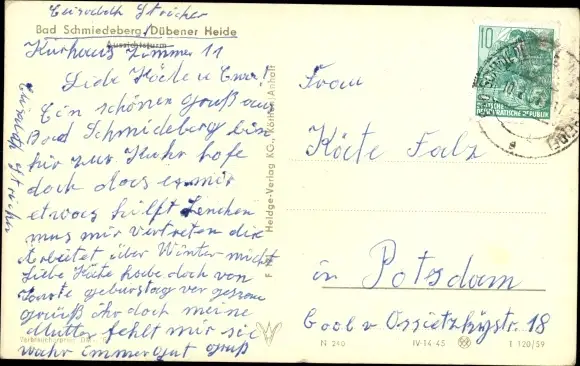 Elisabeth Stricker
Bad Schmiedeberg/Dübener Heide
Aussichtsturm
Kurhaus Zimmer 11
Liebe Käte u Erwi!
Ein schönen Gruß aus
Bad Schmideberg bin
hir zur Kuhr hofe
doch das es mir
etwas hilft Lenchen
mus mir vertreten die
Arbeitet über Winter nicht
Liebe Käte habe doch von
geburstag ver gessen
grüß ihr doch meine
Mutter fehlt mir sie
wahr immer gut Gruß
Elisabeth Stricker
Verbraucherpreis DM
F Heldge-Verlag KG., Köthen/Anhalt
10
DEUTSCHE
DEMOKRATISCHE REPUBLIK
Frau
Käte Falz
in Potsdam
Carl v. Ossietzkystr. 18
N 240 IV-14-45 I 120/59